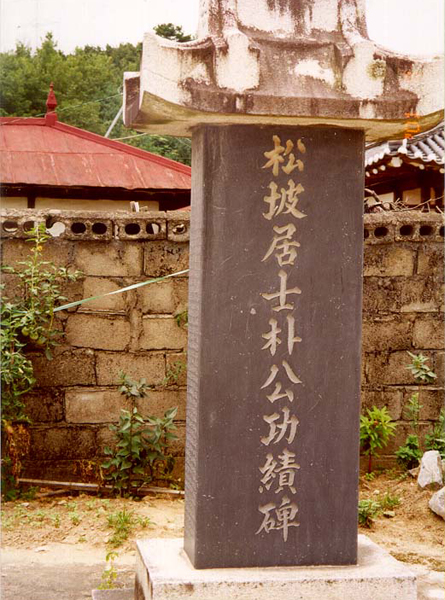 松坡居士朴公功績碑